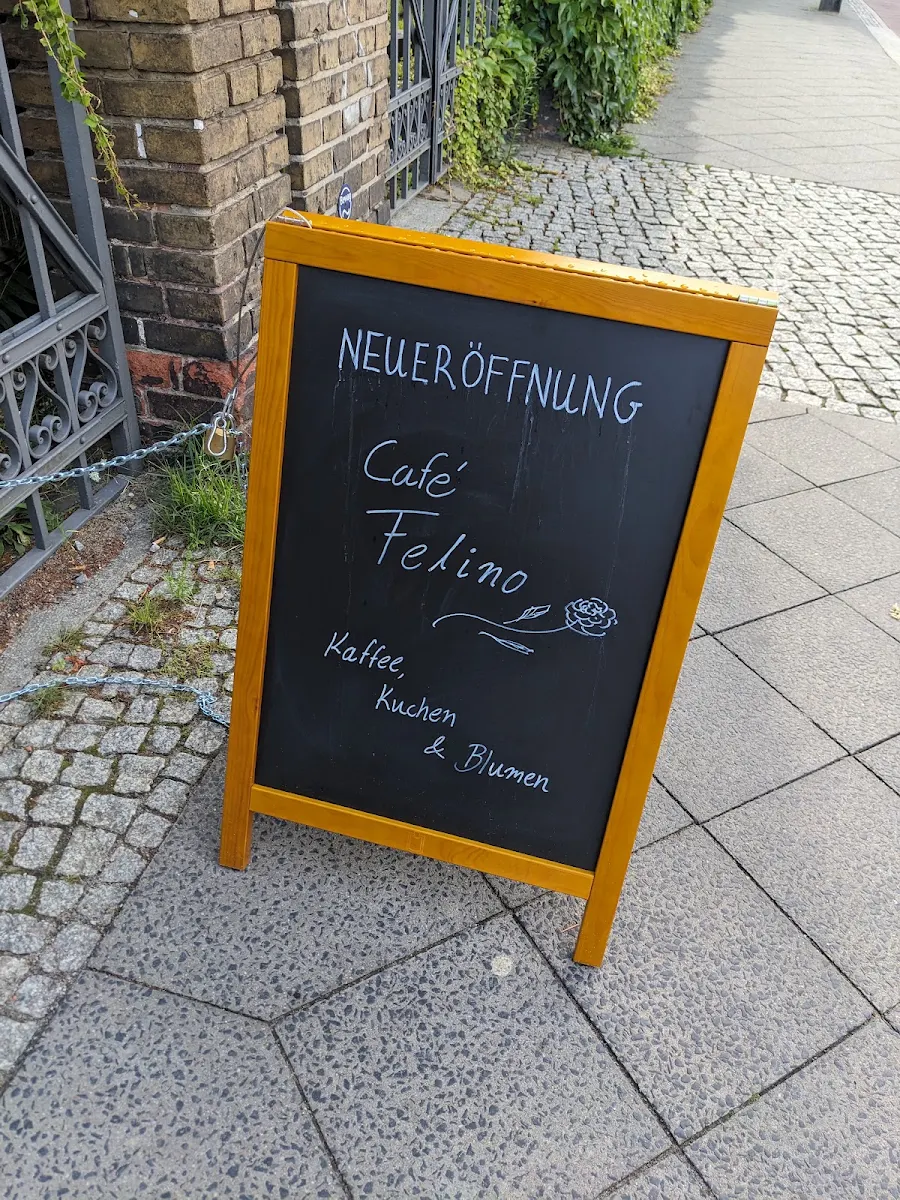 NEUERÖFFNUNG
Café
Felino
Kaffee,
Kuchen
& Blumen